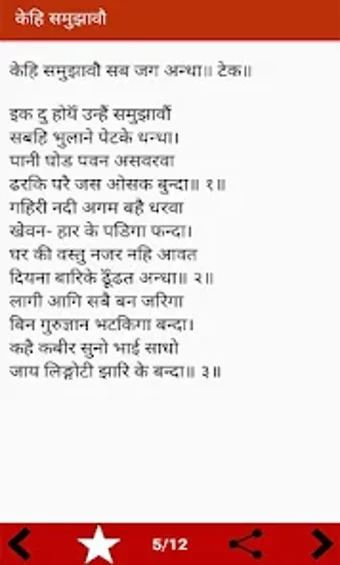 केहि समुझावौ
केहि समुझावौ सब जग अन्धा॥ टेक॥
इक दु होयँ उन्हैं समुझावौं
सबहि भुलाने पेटके धन्धा।
पानी घोड पवन असवरवा
ढरकि परै जस ओसक बुन्दा॥ १॥
गहिरी नदी अगम बहै धरवा
खेवन- हार के पडिगा फन्दा।
घर की वस्तु नजर नहि आवत
दियना बारिके ढूँढत अन्धा॥ २॥
लागी आगि सबै बन जरिगा
बिन गुरुज्ञान भटकिगा बन्दा।
कहै कबीर सुनो भाई साधो
जाय लिङ्गोटी झारि के बन्दा॥ ३॥
5/12